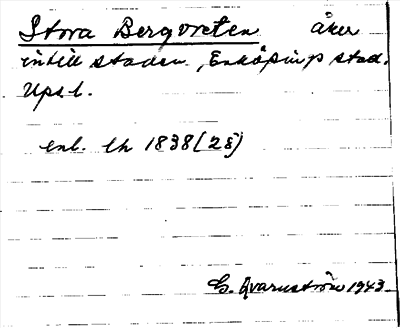 Stora Bergvreten åker
intill staden, Enköpings stad.
Upsl.
enl. lh 1838 (28)
G. Qvarnström 1943